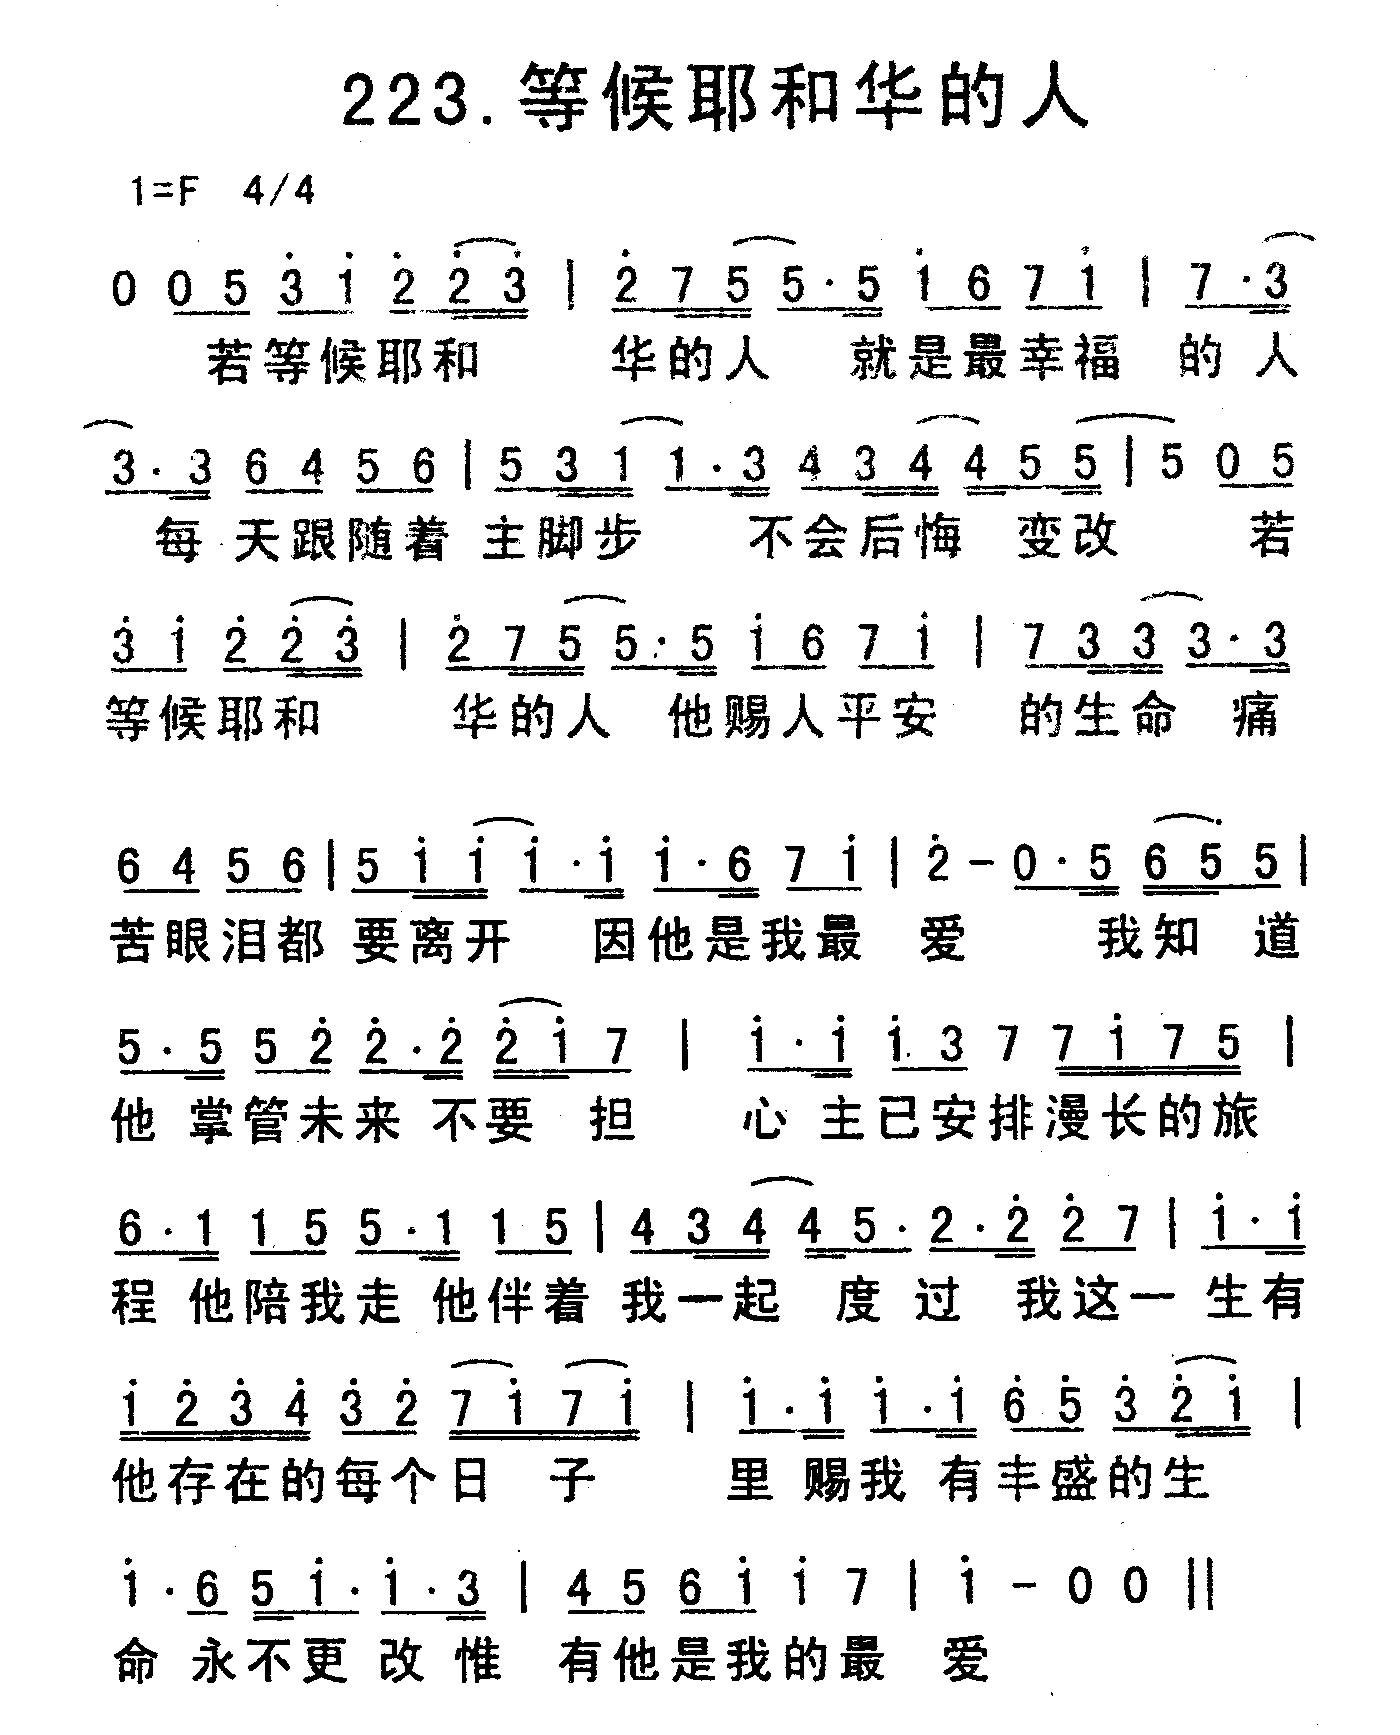 223.等候耶和华的人
1=F 4/4
0 0 5 3 1 2 2 3 | 2 7 5 5·5 1 6 7 1 | 7·3
若等候耶和 华的人 就是最幸福 的 人
3·3 6 4 5 6 | 5 3 1 1·3 4 3 4 4 5 5 | 5 0 5
每 天跟随着 主脚步 不会后悔 变改 若
3 1 2 2 3 | 2 7 5 5·5 1 6 7 1 | 7 3 3 3·3
等候耶和 华的人 他赐人平安 的生命 痛
6 4 5 6 | 5 1 1 1·1 1·6 7 1 | 2 - 0·5 6 5 5 |
苦眼泪都 要离开 因他是我最 爱 我知 道
5·5 5 2 2·2 2 1 7 | 1·1 1 3 7 7 1 7 5 |
他 掌管未来 不要 担 心 主已安排漫长的旅
6·1 1 5 5·1 1 5 | 4 3 4 4 5· 2·2 2 7 | 1·1
程 他陪我走 他伴着 我一起 度 过 我这一 生有
1 2 3 4 3 2 7 1 7 1 | 1·1 1·1 6 5 3 2 1 |
他存在的每个日 子 里 赐我 有丰盛的生
1·6 5 1·1·3 | 4 5 6 1 1 7 | 1 - 0 0 ||
命 永不更 改 惟 有他是我的最 爱